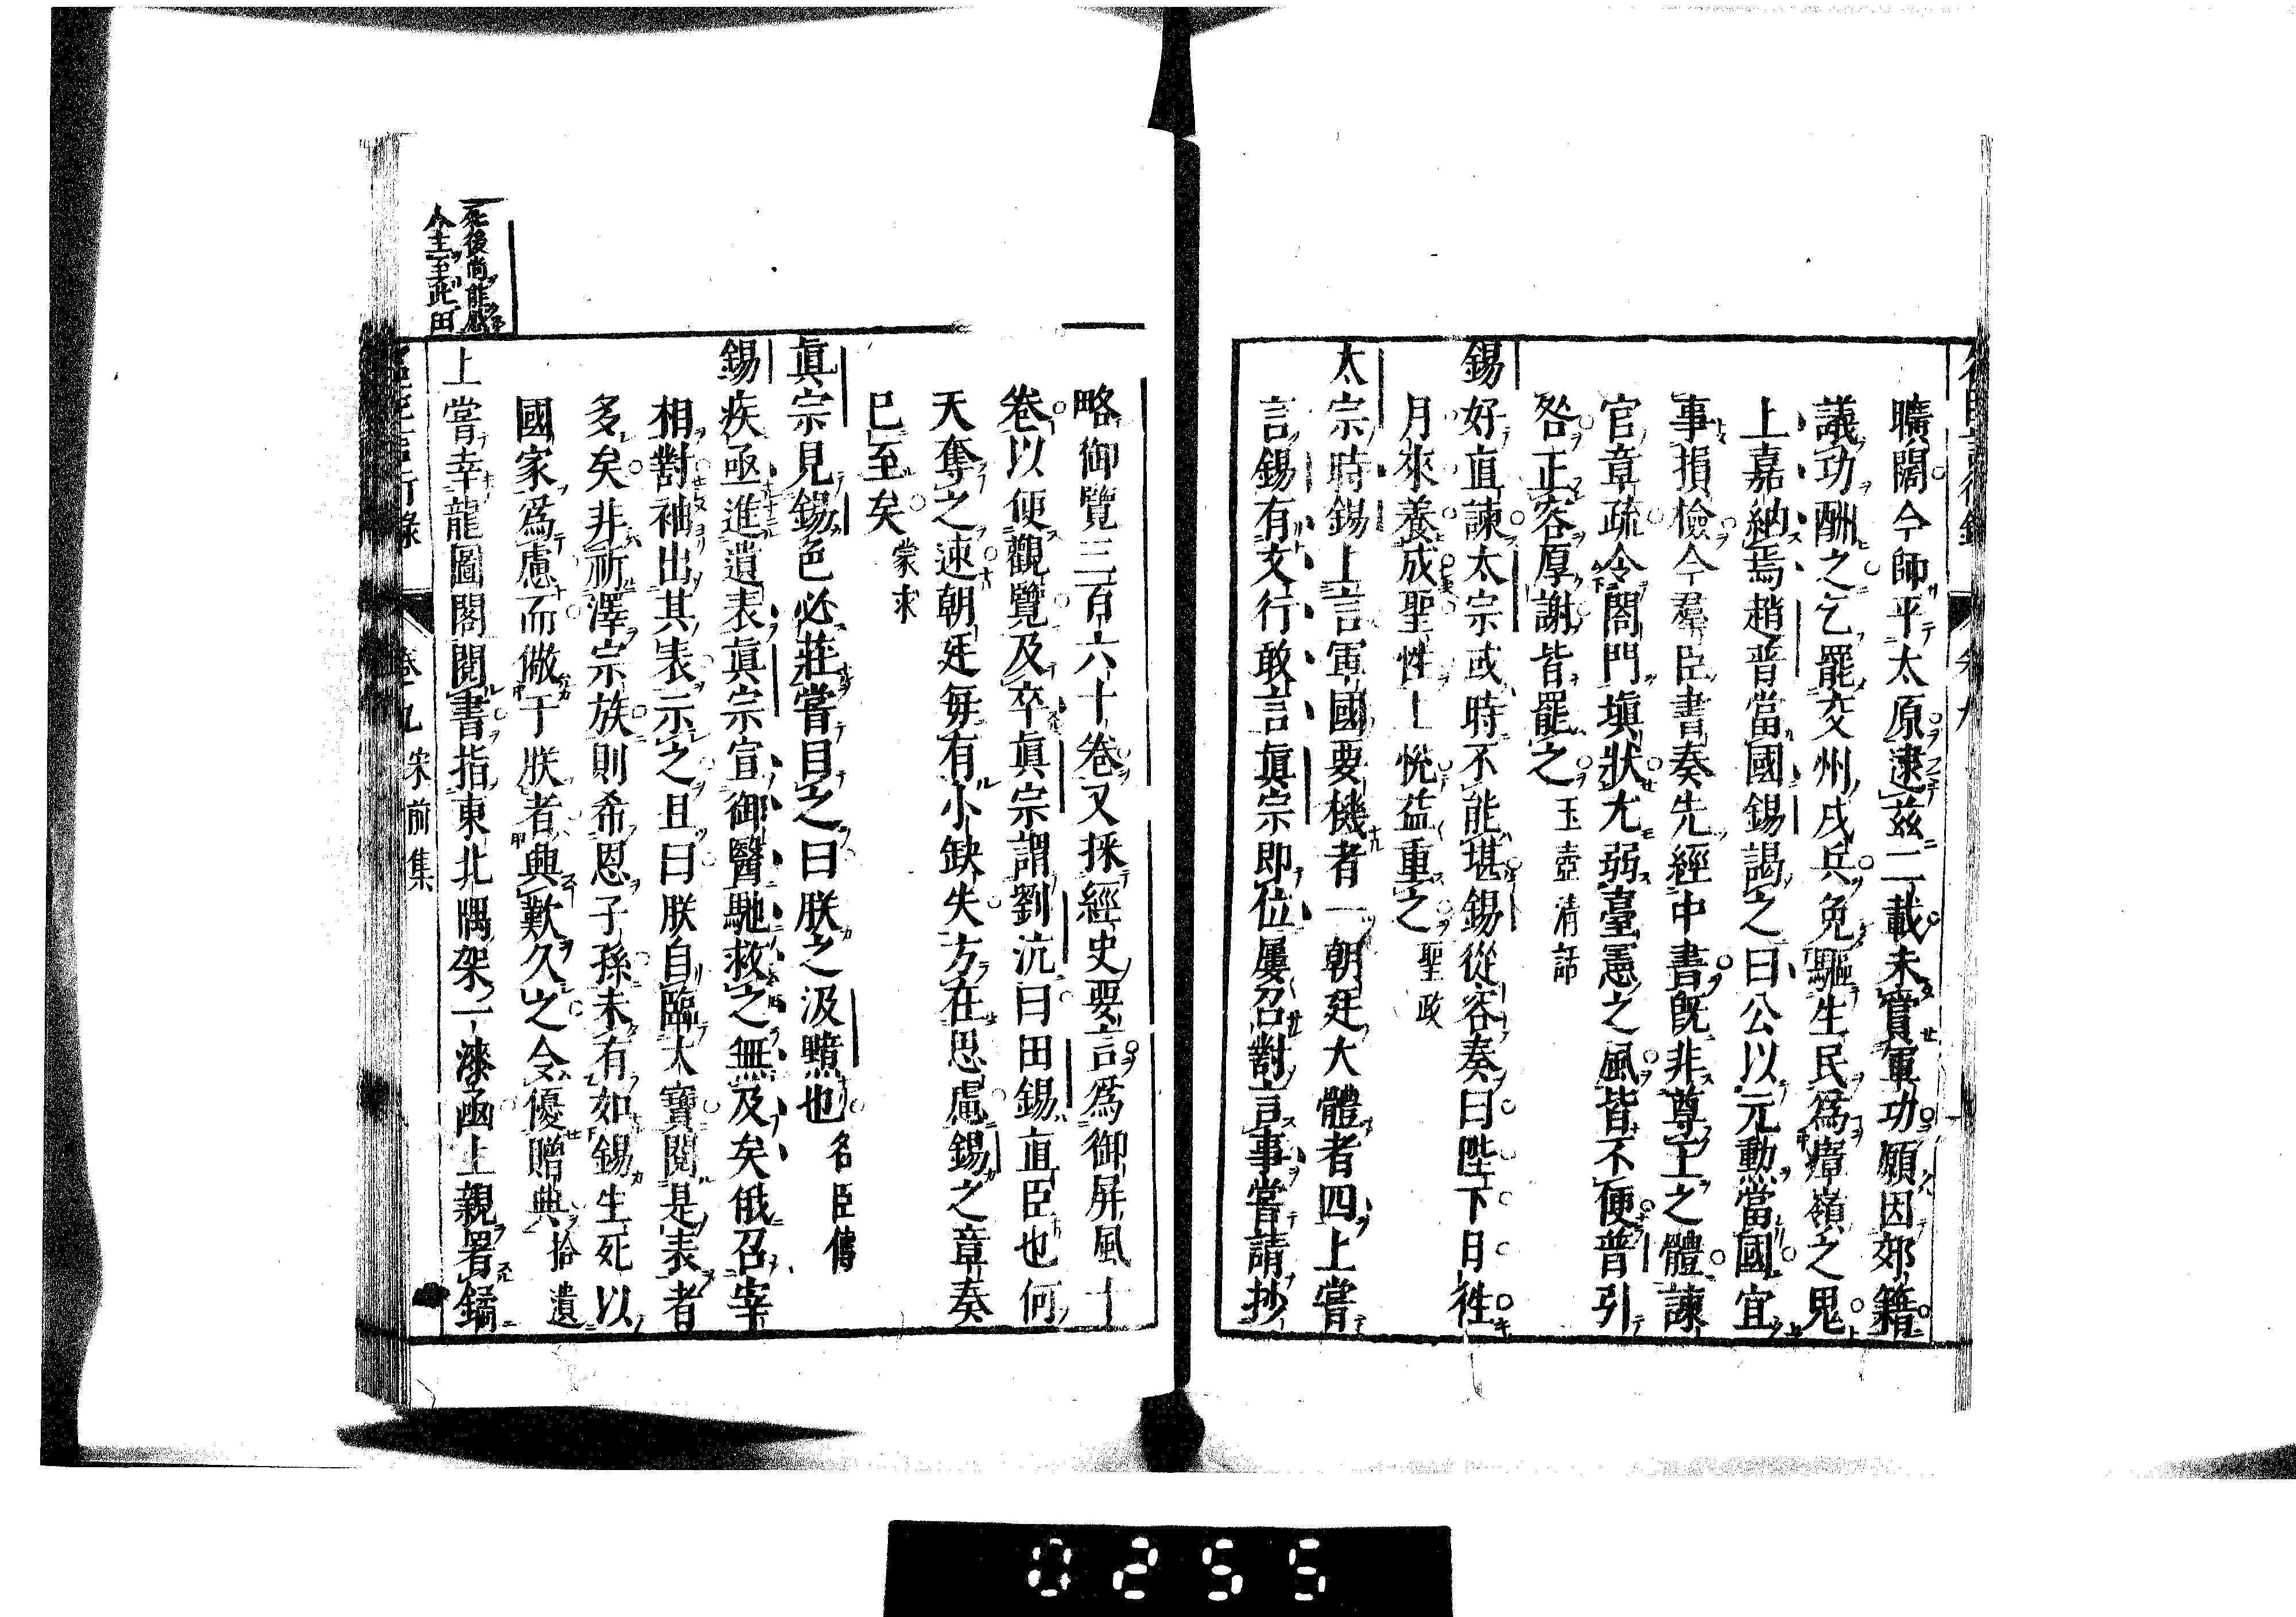 曠闊今師平太原逮茲二載未賞軍功願因郊籍
議功酬之乞罷交州戍兵免驅生民爲瘴嶺之鬼
上嘉納焉趙普當國錫謁之曰公以元勳當國宜
事損儉今羣臣書奏先經中書既非尊上之體諫
官章疏令閤門塡狀尤弱臺憲之風皆不便普引
咎正容厚謝皆罷之 玉壺清話
錫好直諫太宗或時不能堪錫從容奏曰陛下日徃
月來養成聖性上悅益重之 聖政
太宗時錫上言軍國要機者一朝廷大體者四上嘗
言錫有文行敢言眞宗即位屢召對言事嘗請抄
略御覽三百六十卷又採經史要言爲御屏風十
卷以便觀覽及卒眞宗謂劉沆曰田錫直臣也何
天奪之速朝廷每有小缺失方在思慮錫之章奏
已至矣 蒙求
眞宗見錫色必莊嘗目之曰朕之汲黯也 名臣傳
錫疾亟進遺表眞宗宣御醫馳救之無及矣俄召宰
相對袖出其表示之且曰朕自臨大寶閱是表者
多矣非祈澤宗族則希恩子孫未有如錫生死以
國家爲慮而儆于朕者興歎久之令優贈典 拾遺
上嘗幸龍圖閣閱書指東北隅架一漆函上親署鐍
死後尚能感
人主至此田
卷九 宋前集
0255